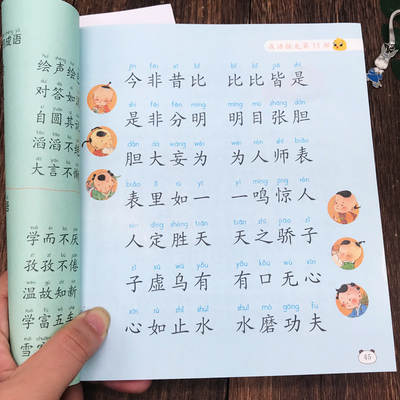 成语
绘声绘
对答如
自圆其
滔滔不
大言不
语
学而不厌
孜孜不倦
温故知
学富五
雪
成语接龙第11组
jīn fēi xī bǐ bǐ bǐ jiē shì
今非昔比 比比皆是
shì fēi fēn míng míng mù zhāng dǎn
是非分明 明目张胆
dǎn dà wàng wéi wéi rén shī biǎo
胆大妄为 为人师表
biǎo lǐ rú yī yì míng jīng rén
表里如一 一鸣惊人
rén dìng shèng tiān tiān zhī jiāo zǐ
人定胜天 天之骄子
zǐ xū wū yǒu yǒu kǒu wú xīn
子虚乌有 有口无心
xīn rú zhǐ shuǐ shuǐ mó gōng fu
心如止水 水磨功夫
45